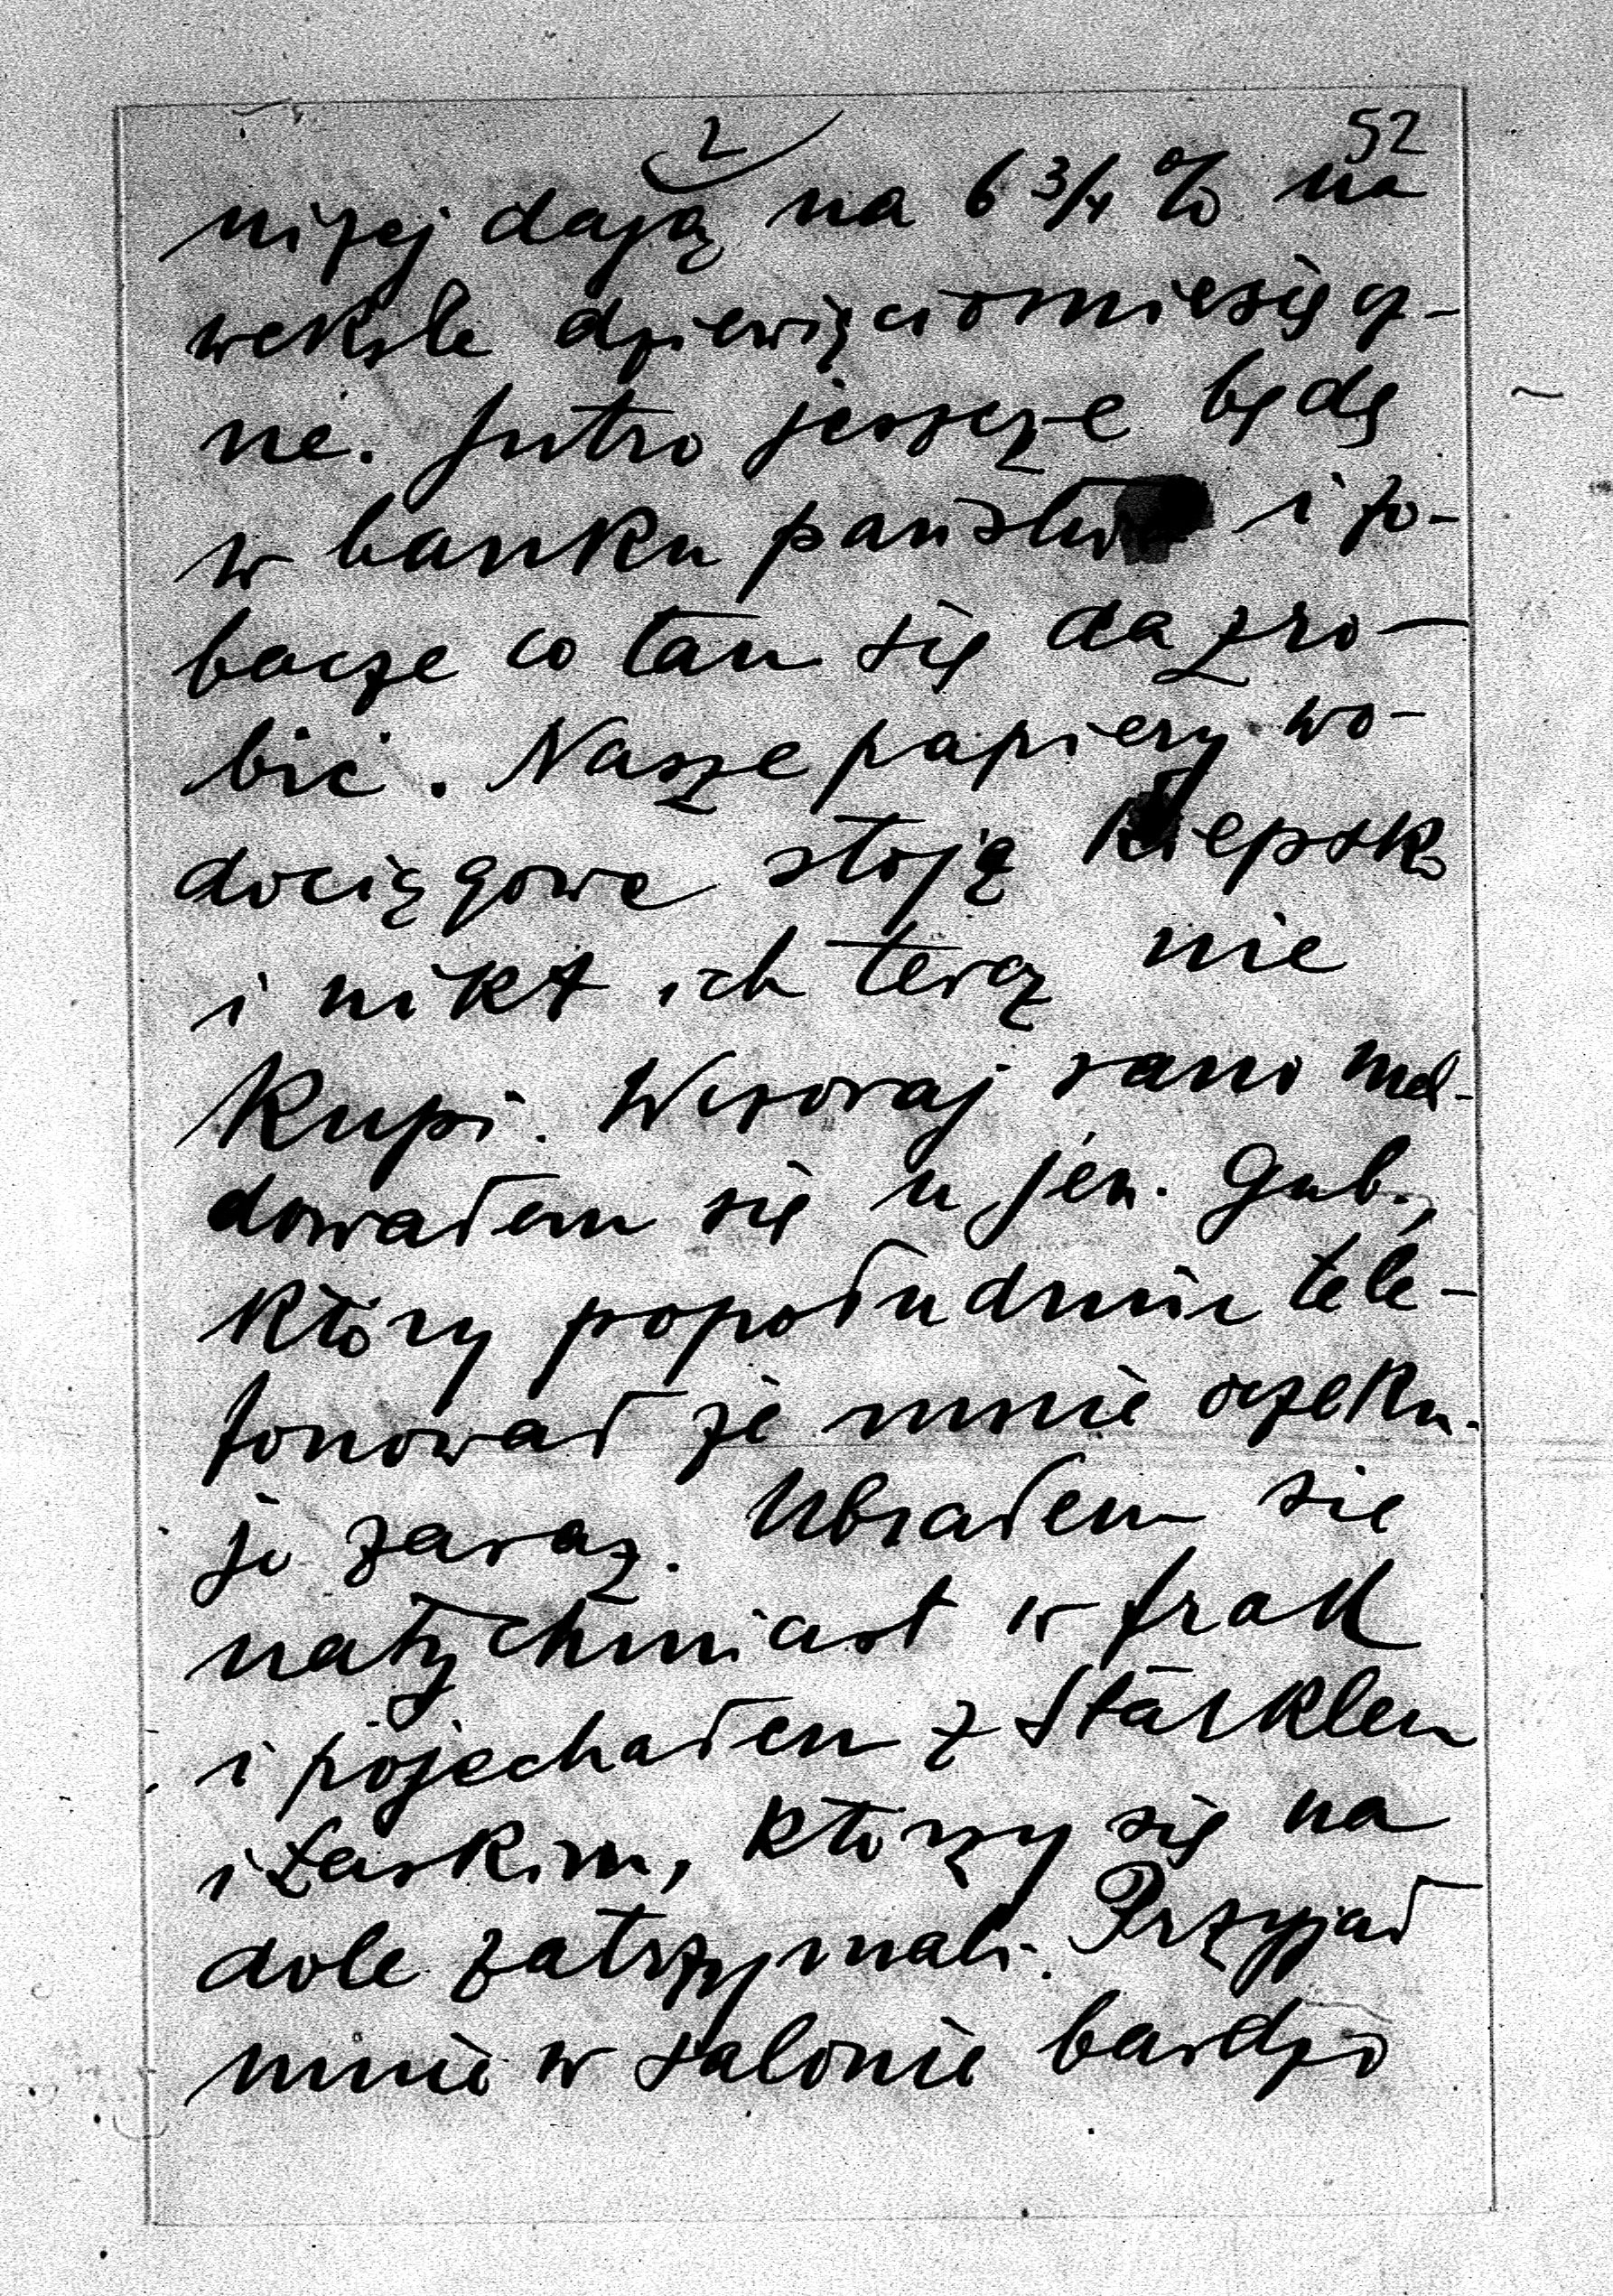 2
52
niżej dają na 6 3/4 % na
weksle dziewięciomiesięcz-
ne. Jutro jeszcze będę
w banku państw i zo-
baczę co tam się da zro-
bić. Nasze papiery wo-
dociągowe stoją kiepsko
i nikt ich teraz nie
kupi. Wczoraj rano mel-
dowałem się u jen. Gub.,
który popołudniu tele-
fonował że mnie oczeku-
je zaraz. Ubrałem się
natychmiast w frak
i pojechałem z Stärklem
i Łaskim, którzy się na
dole zatrzymali. Przyjął
mnie w salonie bardzo